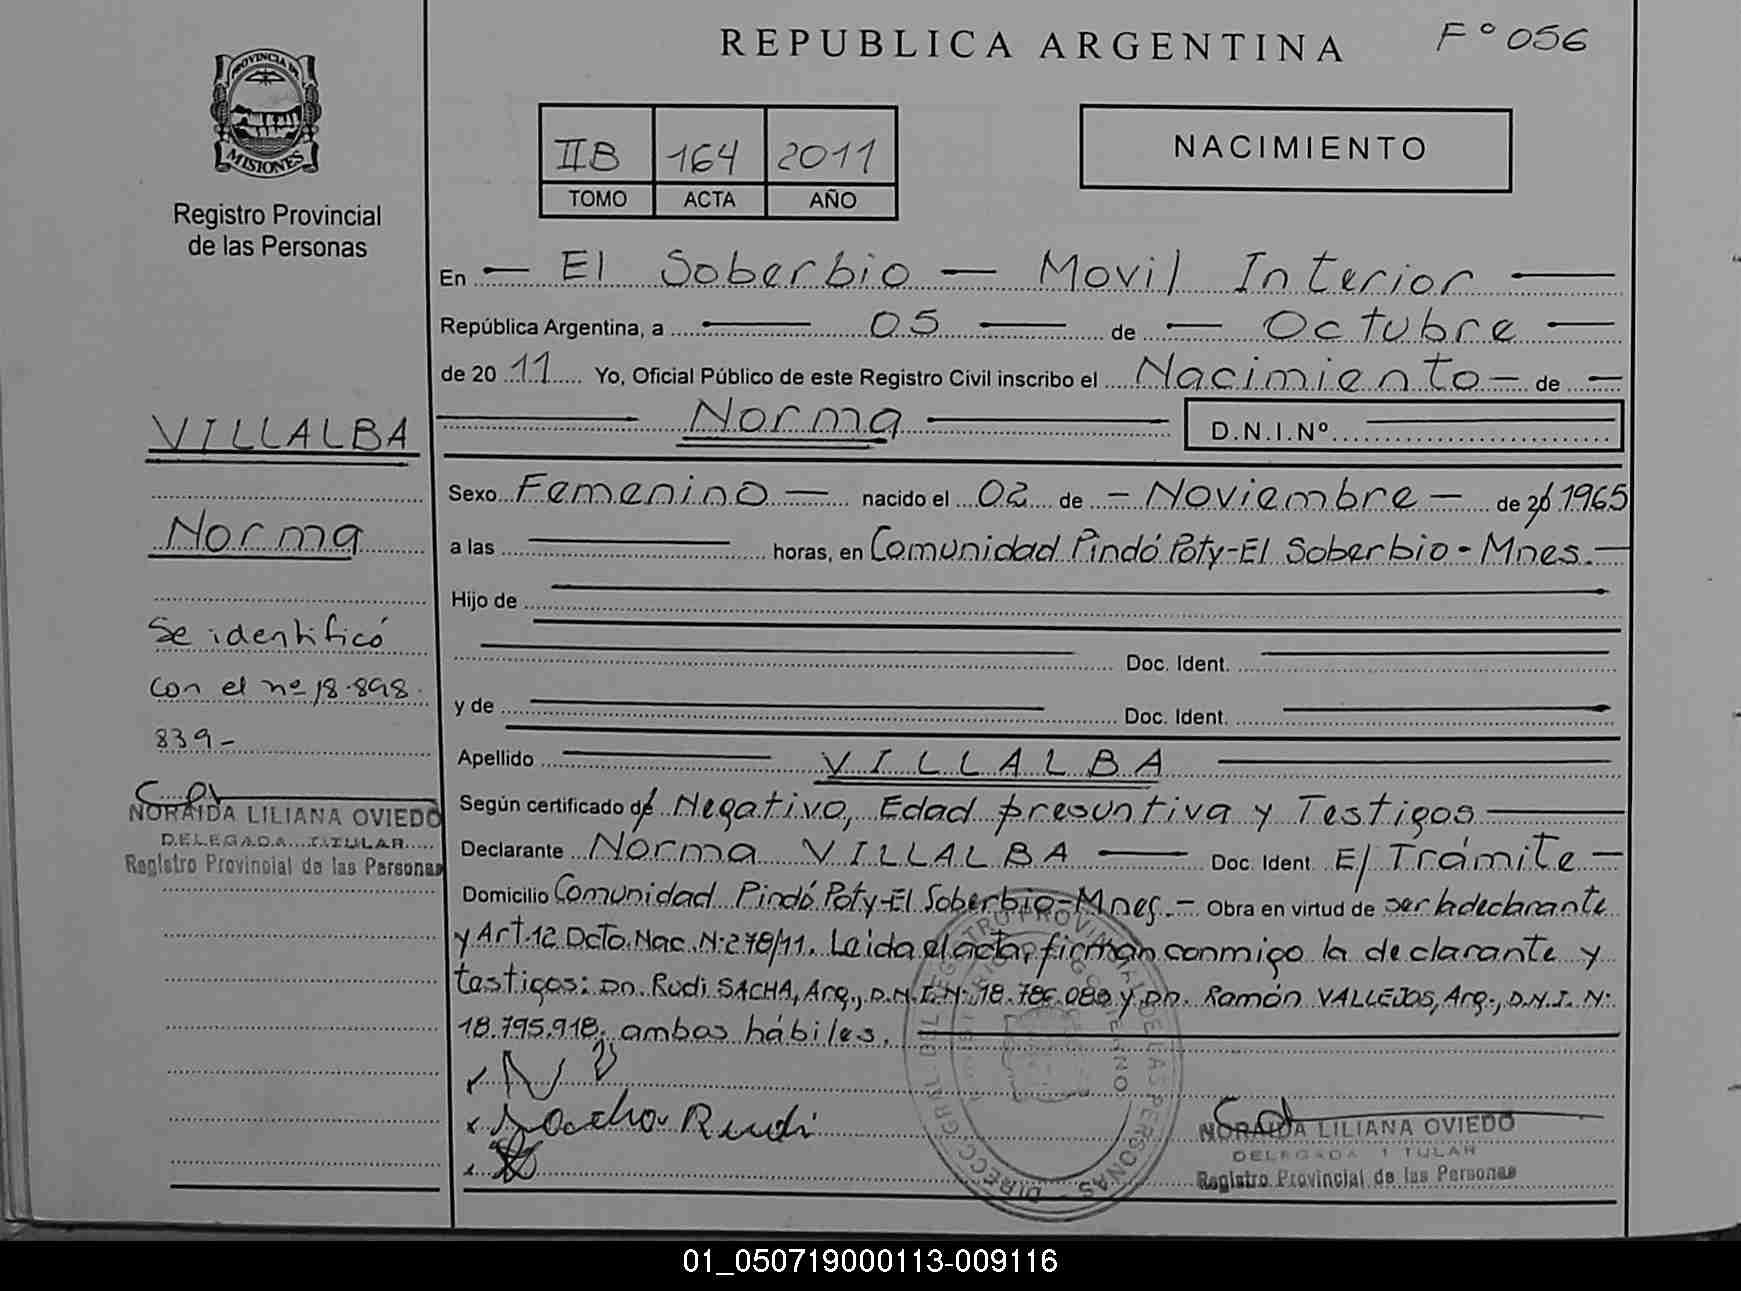 REPUBLICA ARGENTINA
Fº 056
PROVINCIA DE
MISIONES
Registro Provincial
de las Personas
IIB 164 2011
TOMO ACTA AÑO
NACIMIENTO
En — El Soberbio — Movil Interior —
República Argentina, a — 05 — de — Octubre —
de 20 11 Yo, Oficial Público de este Registro Civil inscribo el Nacimiento — de —
— Norma — D.N.I.Nº —
Sexo Femenino — nacido el 02 de — Noviembre — de 20 1965
a las — horas, en Comunidad Pindó Poty-El Soberbio - Mnes. —
Hijo de —
— Doc. Ident. —
y de — Doc. Ident. —
Apellido — VILLALBA —
Según certificado de Negativo, Edad presuntiva y Testigos —
Declarante Norma VILLALBA — Doc. Ident. E/ Trámite —
Domicilio Comunidad Pindó Poty-El Soberbio-Mnes. — Obra en virtud de ser la declarante
y Art. 12 Dcto. Nac. N: 278/11. Leida el acta, firman conmigo la declarante y
testigos: Dn. Rudi SACHA, Arg., D.N.I. N: 18.786.080 y Dn. Ramón VALLEJOS, Arg., D.N.I. N:
18.795.918, ambos hábiles. —
Sacha Rudi
NORAIDA LILIANA OVIEDO
DELEGADA TITULAR
Registro Provincial de las Personas
VILLALBA
Norma
Se identificó
con el nº 18.898.
839-
NORAIDA LILIANA OVIEDO
DELEGADA TITULAR
Registro Provincial de las Personas
01_050719000113-009116